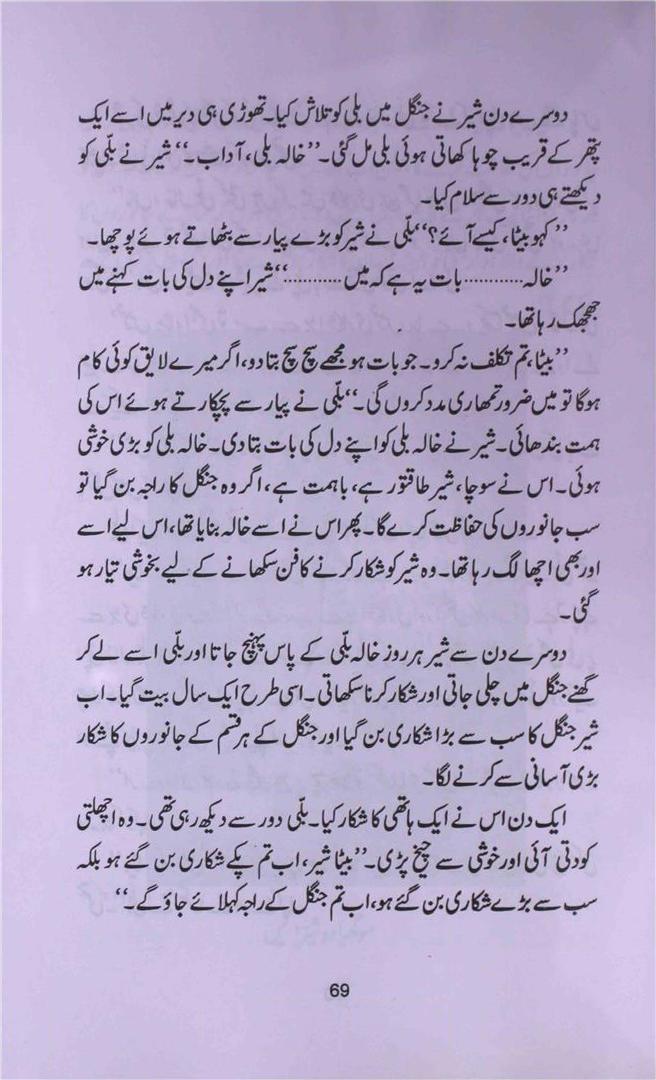 دوسرے دن شیر نے جنگل میں بلی کو تلاش کیا۔ تھوڑی ہی دیر میں اسے ایک
پتھر کے قریب چوہا کھاتی ہوئی بلی مل گئی۔ ’’خالہ بلی، آداب۔‘‘ شیر نے بلّی کو
دیکھتے ہی دور سے سلام کیا۔
’’کہو بیٹا، کیسے آئے؟‘‘ بلّی نے شیر کو بڑے پیار سے بٹھاتے ہوئے پوچھا۔
’’خالہ............ بات یہ ہے کہ میں ............‘‘ شیر اپنے دل کی بات کہنے میں
جھجھک رہا تھا۔
’’بیٹا، تم تکلف نہ کرو۔ جو بات ہو مجھے سچ سچ بتا دو، اگر میرے لایق کوئی کام
ہوگا تو میں ضرور تمھاری مدد کروں گی۔‘‘ بلّی نے پیار سے پچکارتے ہوئے اس کی
ہمت بندھائی۔ شیر نے خالہ بلی کو اپنے دل کی بات بتا دی۔ خالہ بلی کو بڑی خوشی
ہوئی۔ اس نے سوچا، شیر طاقتور ہے، باہمت ہے، اگر وہ جنگل کا راجہ بن گیا تو
سب جانوروں کی حفاظت کرے گا۔ پھر اس نے اسے خالہ بنایا تھا، اس لیے اسے
اور بھی اچھا لگ رہا تھا۔ وہ شیر کو شکار کرنے کا فن سکھانے کے لیے بخوشی تیار ہو
گئی۔
دوسرے دن سے شیر ہر روز خالہ بلّی کے پاس پہنچ جاتا اور بلّی اسے لے کر
گھنے جنگل میں چلی جاتی اور شکار کرنا سکھاتی۔ اسی طرح ایک سال بیت گیا۔ اب
شیر جنگل کا سب سے بڑا شکاری بن گیا اور جنگل کے ہر قسم کے جانوروں کا شکار
بڑی آسانی سے کرنے لگا۔
ایک دن اس نے ایک ہاتھی کا شکار کیا۔ بلّی دور سے دیکھ رہی تھی۔ وہ اچھلتی
کودتی آئی اور خوشی سے چیخ پڑی۔ ’’بیٹا شیر، اب تم پکے شکاری بن گئے ہو بلکہ
سب سے بڑے شکاری بن گئے ہو، اب تم جنگل کے راجہ کہلائے جاؤ گے۔‘‘
69